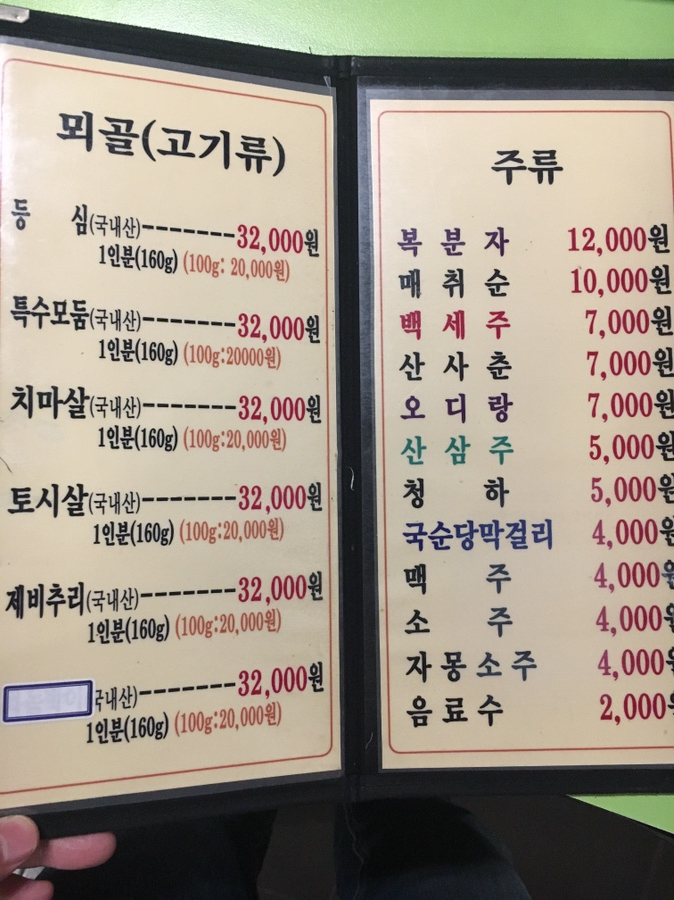 뫼골(고기류)
등 심(국내산)--------32,000원
1인분(160g) (100g: 20,000원)
특수모듬(국내산)--------32,000원
1인분(160g) (100g:20000원)
치마살(국내산)--------32,000원
1인분(160g) (100g:20,000원)
토시살(국내산)--------32,000원
1인분(160g) (100g:20,000원)
제비추리(국내산)--------32,000원
1인분(160g) (100g:20,000원)
국내산)--------32,000원
1인분(160g) (100g:20,000원)
주류
복 분 자 12,000원
매 취 순 10,000원
백 세 주 7,000원
산 사 춘 7,000원
오 디 랑 7,000원
산 삼 주 5,000원
청 하 5,000원
국순당막걸리 4,000원
맥 주 4,000원
소 주 4,000원
자 몽 소 주 4,000원
음 료 수 2,000원